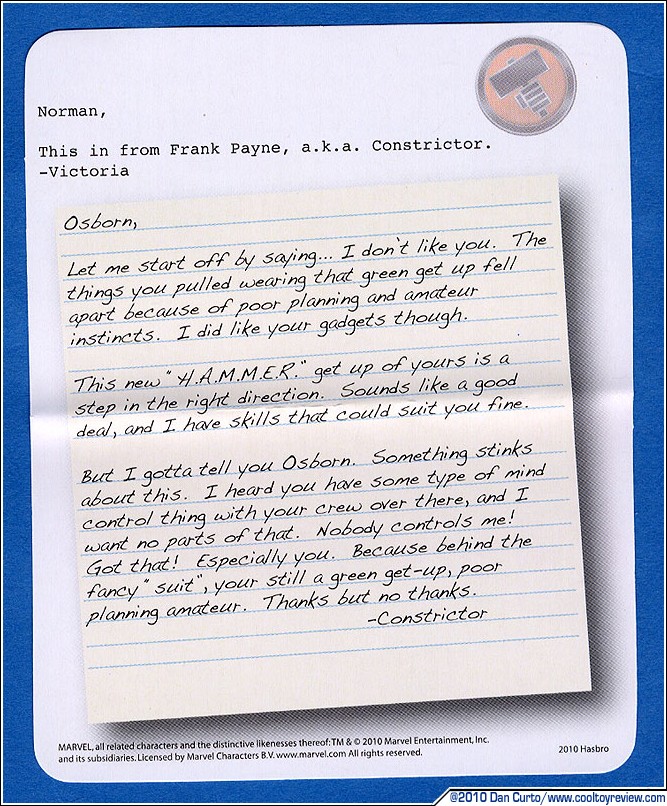 Norman,
This in from Frank Payne, a.k.a. Constrictor.
-Victoria
Osborn,
Let me start off by saying... I don't like you. The
things you pulled wearing that green get up fell
apart because of poor planning and amateur
instincts. I did like your gadgets though.
This new "H.A.M.M.E.R." get up of yours is a
step in the right direction. Sounds like a good
deal, and I have skills that could suit you fine.
But I gotta tell you Osborn. Something stinks
about this. I heard you have some type of mind
control thing with your crew over there, and I
want no parts of that. Nobody controls me!
Got that! Especially you. Because behind the
fancy "suit", your still a green get-up, poor
planning amateur. Thanks but no thanks.
-Constrictor
MARVEL, all related characters and the distinctive likenesses thereof: TM & © 2010 Marvel Entertainment, Inc.
and its subsidiaries. Licensed by Marvel Characters B.V. www.marvel.com All rights reserved.
2010 Hasbro
@2010 Dan Curto/www.cooltoyreview.com